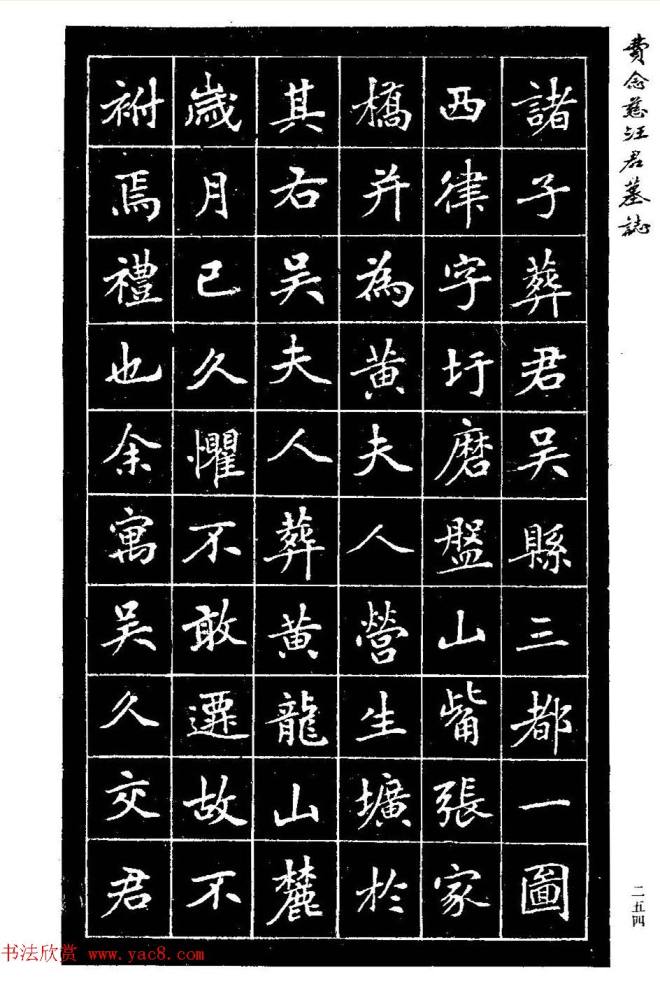 費念慈汪君墓誌
諸子葬君吳縣三都一圖
西律字圩磨盤山觜張家
橋并為黃夫人營生壙於
其右吳夫人葬黃龍山麓
歲月已久懼不敢遷故不
祔焉禮也余寓吳久交君
二五四
书法欣赏 www.yac8.com